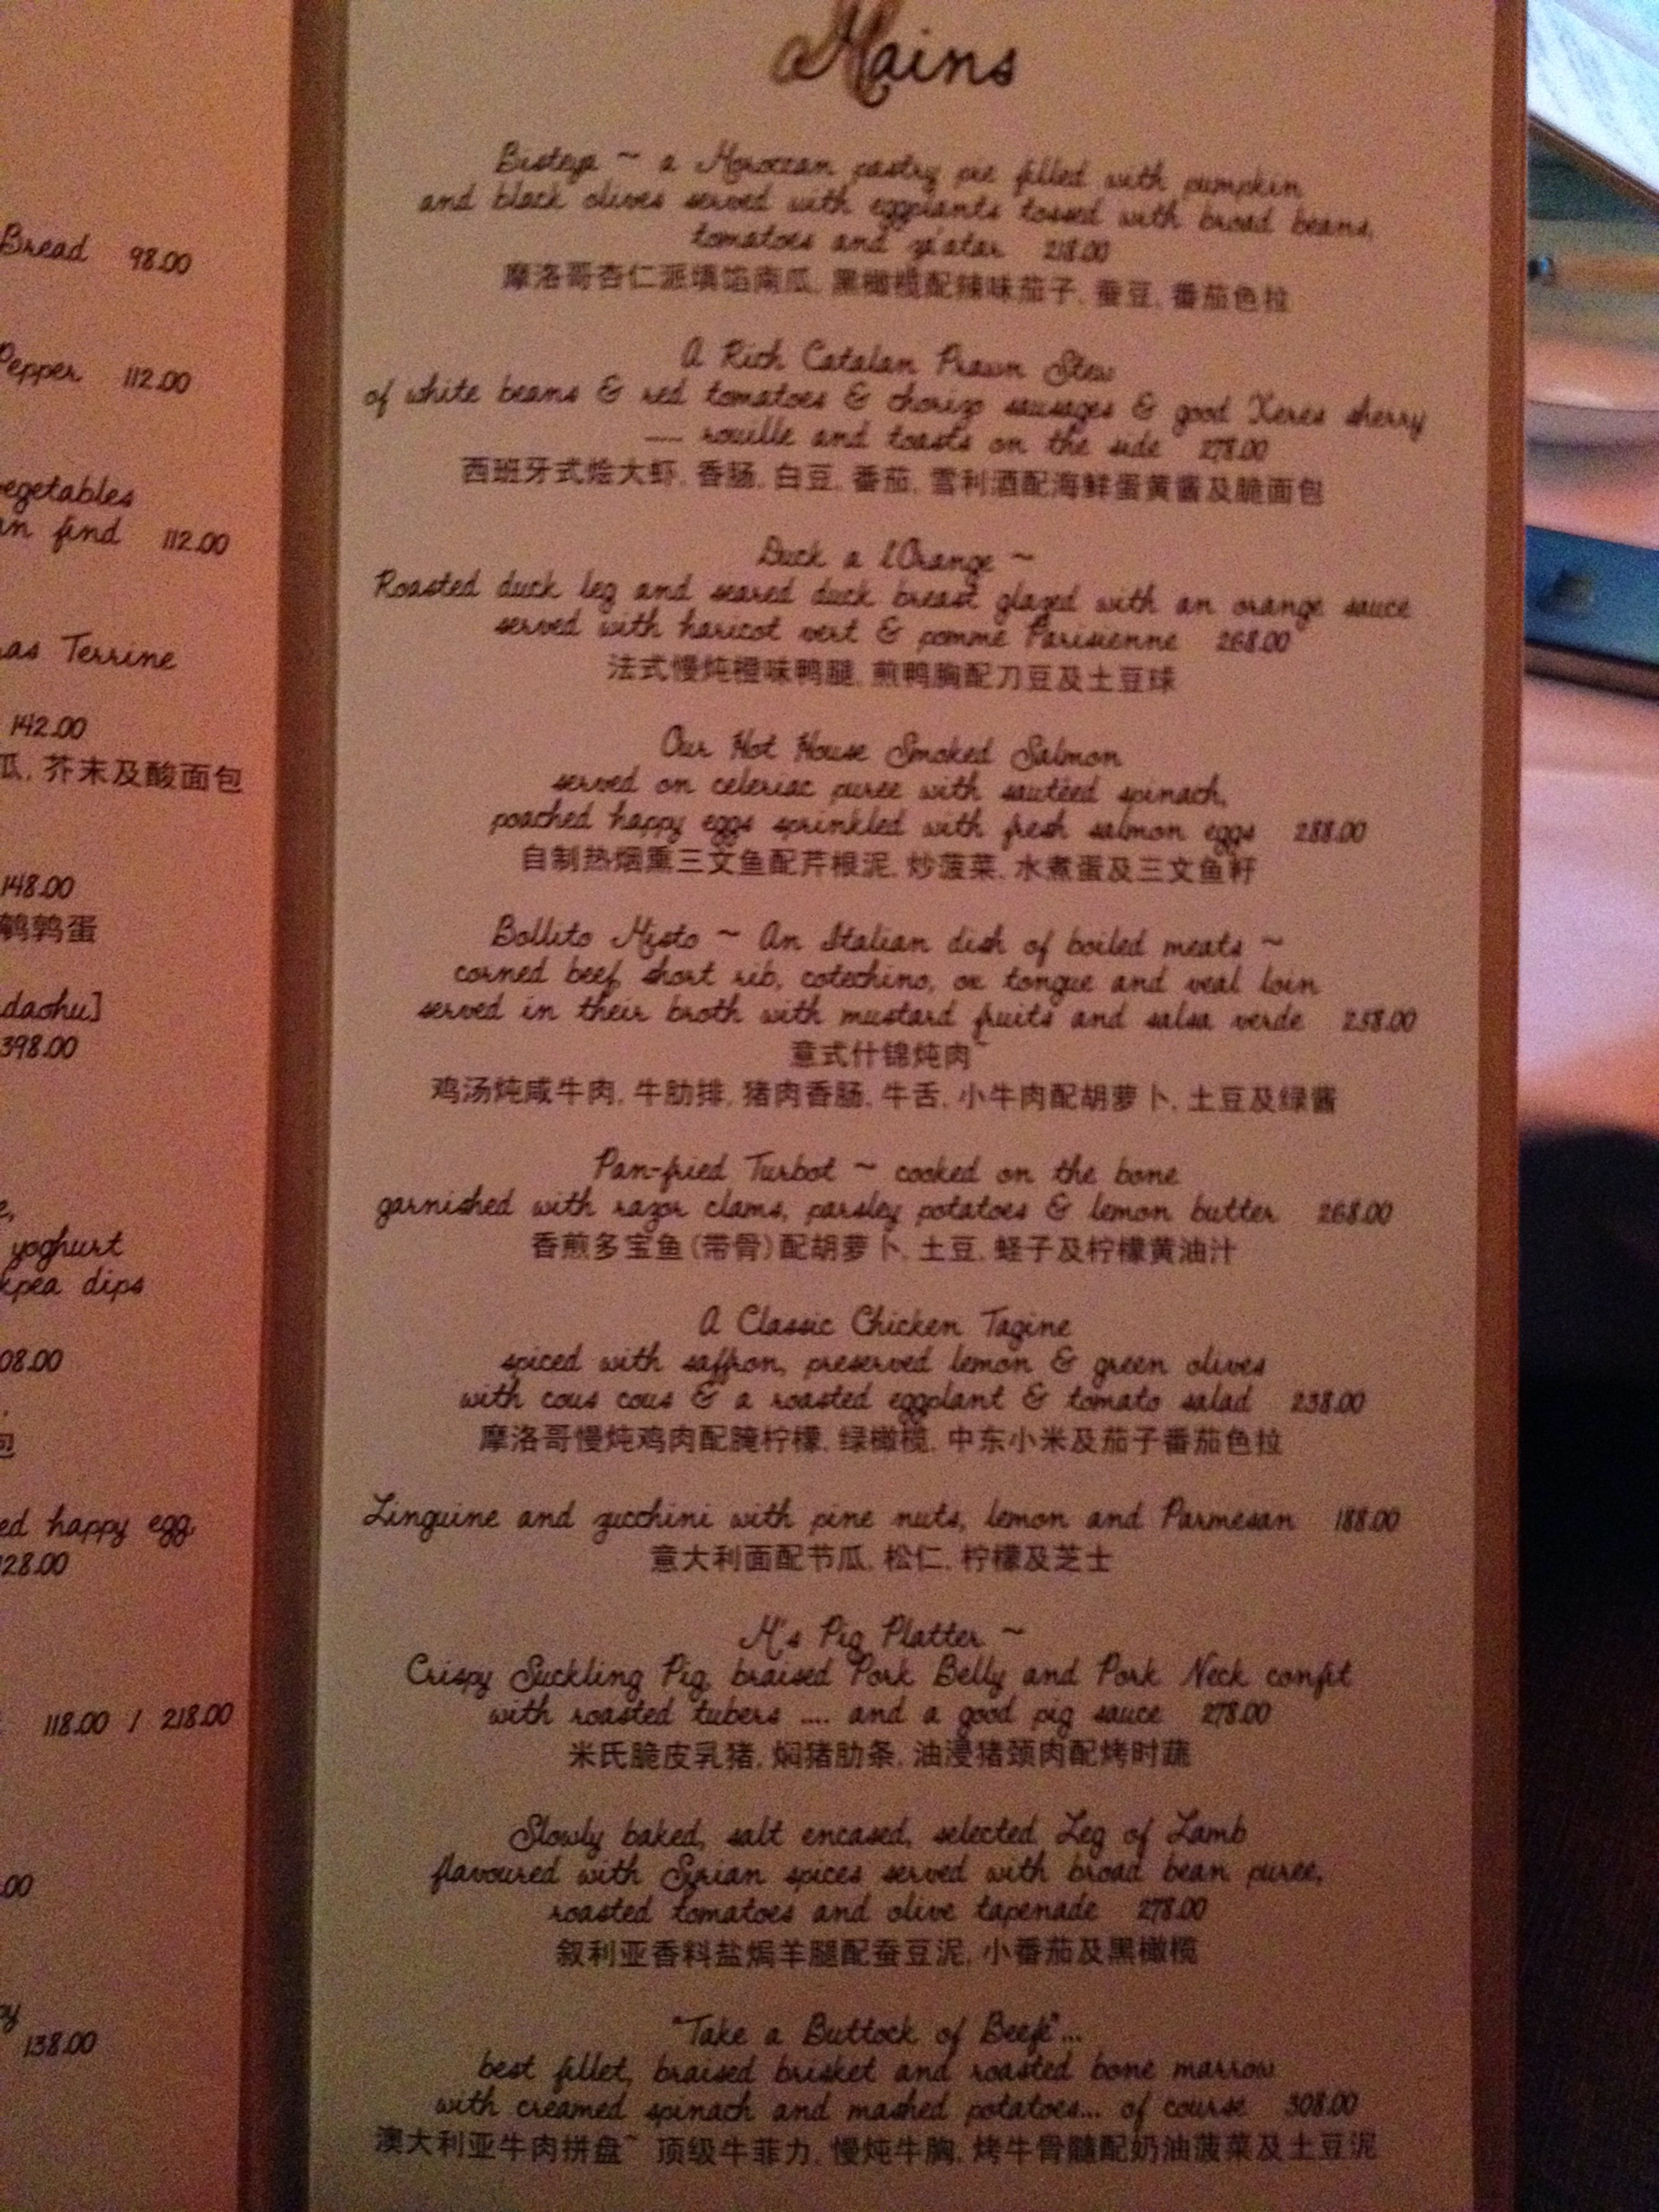 Bread 98.00
Pepper 112.00
vegetables
an find 112.00
as Terrine
142.00
瓜, 芥末及酸面包
148.00
鹌鹑蛋
daohu]
398.00
yoghurt
dips
08.00
包
ed happy egg
28.00
118.00 / 218.00
.00
138.00
Mains
Bisteya ~ a Moroccan pastry pie filled with pumpkin
and black olives served with eggplants tossed with broad beans,
tomatoes and za'atar 218.00
摩洛哥杏仁派填馅南瓜, 黑橄榄配辣味茄子, 蚕豆, 番茄色拉
A Rich Catalan Prawn Stew
of white beans & red tomatoes & chorizo sausages & good Xeres sherry
.... rouille and toasts on the side 278.00
西班牙式烩大虾, 香肠, 白豆, 番茄, 雪利酒配海鲜蛋黄酱及脆面包
Duck a l'Orange ~
Roasted duck leg and seared duck breast glazed with an orange sauce
served with haricot vert & pomme Parisienne 268.00
法式慢炖橙味鸭腿, 煎鸭胸配刀豆及土豆球
Our Hot House Smoked Salmon
served on celeriac puree with sautéed spinach,
poached happy eggs sprinkled with fresh salmon eggs 288.00
自制热烟熏三文鱼配芹根泥, 炒菠菜, 水煮蛋及三文鱼籽
Bollito Misto ~ An Italian dish of boiled meats ~
corned beef, short rib, cotechino, ox tongue and veal loin
served in their broth with mustard fruits and salsa verde 258.00
意式什锦炖肉~
鸡汤炖咸牛肉, 牛肋排, 猪肉香肠, 牛舌, 小牛肉配胡萝卜, 土豆及绿酱
Pan-fried Turbot ~ cooked on the bone
garnished with razor clams, parsley potatoes & lemon butter 268.00
香煎多宝鱼(带骨)配胡萝卜, 土豆, 蛏子及柠檬黄油汁
A Classic Chicken Tagine
spiced with saffron, preserved lemon & green olives
with cous cous & a roasted eggplant & tomato salad 238.00
摩洛哥慢炖鸡肉配腌柠檬, 绿橄榄, 中东小米及茄子番茄色拉
Linguine and zucchini with pine nuts, lemon and Parmesan 188.00
意大利面配节瓜, 松仁, 柠檬及芝士
M's Pig Platter ~
Crispy Suckling Pig, braised Pork Belly and Pork Neck confit
with roasted tubers .... and a good pig sauce 278.00
米氏脆皮乳猪, 焖猪肋条, 油浸猪颈肉配烤时蔬
Slowly baked, salt encased, selected Leg of Lamb
flavoured with Syrian spices served with broad bean puree,
roasted tomatoes and olive tapenade 278.00
叙利亚香料盐焗羊腿配蚕豆泥, 小番茄及黑橄榄
"Take a Buttock of Beefe"...
best fillet, braised brisket and roasted bone marrow
with creamed spinach and mashed potatoes... of course 308.00
澳大利亚牛肉拼盘~ 顶级牛菲力, 慢炖牛胸, 烤牛骨髓配奶油菠菜及土豆泥